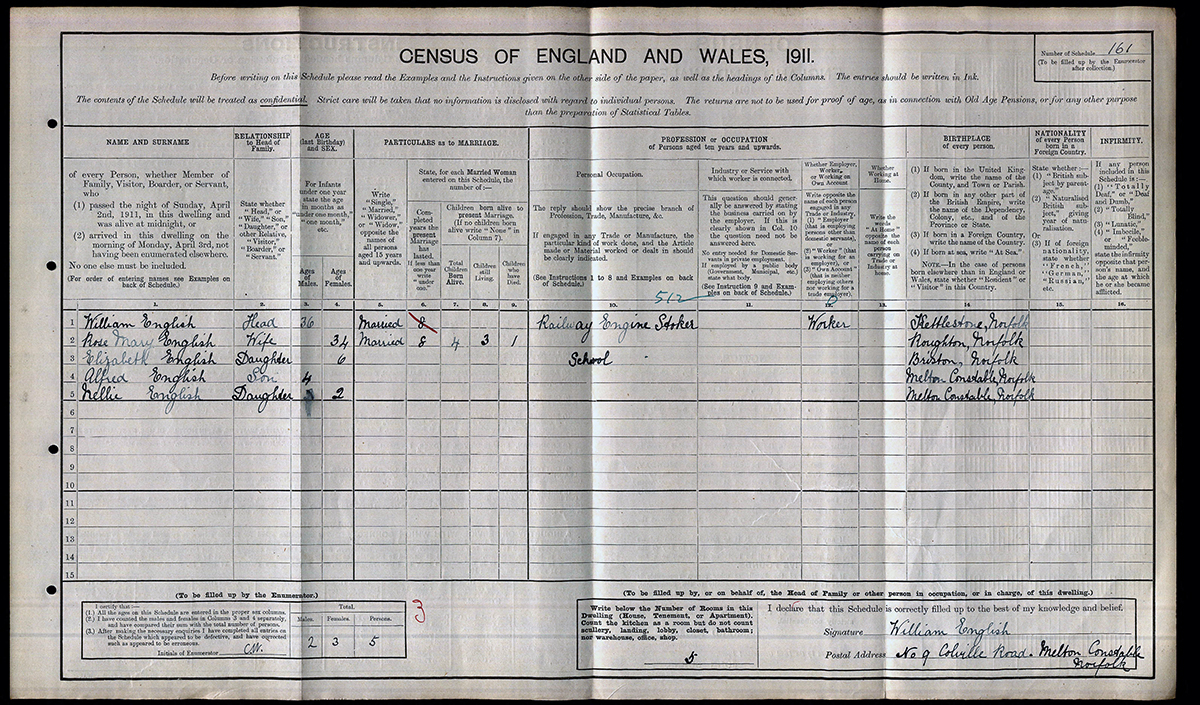 CENSUS OF ENGLAND AND WALES, 1911.
Number of Schedule 161
(To be filled up by the Enumerator
after collection.)
Before writing on this Schedule please read the Examples and the Instructions given on the other side of the paper, as well as the headings of the Columns. The entries should be written in Ink.
The contents of the Schedule will be treated as confidential. Strict care will be taken that no information is disclosed with regard to individual persons. The returns are not to be used for proof of age, as in connection with Old Age Pensions, or for any other purpose
than the preparation of Statistical Tables.
NAME AND SURNAME
of every Person, whether Member of
Family, Visitor, Boarder, or Servant,
who
(1) passed the night of Sunday, April
2nd, 1911, in this dwelling and
was alive at midnight, or
(2) arrived in this dwelling on the
morning of Monday, April 3rd, not
having been enumerated elsewhere.
No one else must be included.
(For order of entering names see Examples on
back of Schedule.)
1.
RELATIONSHIP
to Head of
Family.
State whether
"Head," or
"Wife," "Son,"
"Daughter," or
other Relative,
"Visitor,"
"Boarder," or
"Servant."
2.
AGE
(last Birthday)
and SEX.
For Infants
under one year
state the age
in months as
"under one month,"
"one month,"
etc.
Ages
of
Males.
3.
Ages
of
Females.
4.
PARTICULARS as to MARRIAGE.
Write
"Single,"
"Married,"
"Widower,"
or "Widow,"
opposite the
names of
all persons
aged 15 years
and upwards.
5.
State, for each Married Woman
entered on this Schedule, the
number of:—
Com-
pleted
years the
present
Marriage
has
lasted.
If less than
one year
write
"under
one."
6.
Children born alive to
present Marriage.
(If no children born
alive write "None" in
Column 7).
Total
Children
Born
Alive.
7.
Children
still
Living.
8.
Children
who
have
Died.
9.
PROFESSION or OCCUPATION
of Persons aged ten years and upwards.
Personal Occupation.
The reply should show the precise branch of
Profession, Trade, Manufacture, &c.
If engaged in any Trade or Manufacture, the
particular kind of work done, and the Article
made or Material worked or dealt in should
be clearly indicated.
(See Instructions 1 to 8 and Examples on back
of Schedule.)
512
10.
Industry or Service with
which worker is connected.
This question should gener-
ally be answered by stating
the business carried on by
the employer. If this is
clearly shown in Col. 10
the question need not be
answered here.
No entry needed for Domestic Ser-
vants in private employment.
If employed by a public body
(Government, Municipal, etc.)
state what body.
(See Instruction 9 and Exam-
ples on back of Schedule.)
11.
Whether Employer,
Worker,
or Working on
Own Account
Write opposite the
name of each person
engaged in any
Trade or Industry,
(1) "Employer"
(that is employing
persons other than
domestic servants),
or
(2) "Worker" (that
is working for an
employer), or
(3) "Own Account"
(that is neither
employing others
nor working for a
trade employer).
12.
Whether
Working at
Home.
Write the
words
"At Home"
opposite the
name of each
person
carrying on
Trade or
Industry at
home.
13.
BIRTHPLACE
of every person.
(1) If born in the United King-
dom, write the name of the
County, and Town or Parish.
(2) If born in any other part of
the British Empire, write
the name of the Dependency,
Colony, etc., and of the
Province or State.
(3) If born in a Foreign Country,
write the name of the Country.
(4) If born at sea, write "At Sea."
NOTE.—In the case of persons
born elsewhere than in England or
Wales, state whether "Resident" or
"Visitor" in this Country.
14
NATIONALITY
of every Person
born in a
Foreign Country.
State whether:—
(1) "British sub-
ject by parent-
age."
(2) "Naturalised
British sub-
ject," giving
year of natu-
ralisation.
Or
(3) If of foreign
nationality,
state whether
"French,"
"German,"
"Russian,"
etc.
15.
INFIRMITY.
If any person
included in this
Schedule is:—
(1) "Totally
Deaf," or "Deaf
and Dumb,"
(2) "Totally
Blind,"
(3) "Lunatic,"
(4) "Imbecile,"
or "Feeble-
minded,"
state the infirmity
opposite that per-
son's name, and
the age at which
he or she became
afflicted.
16.
1 William English Head 36 Married 8 Railway Engine Stoker Worker Kettlestone, Norfolk
2 Rose Mary English Wife 34 Married 8 4 3 1 Roughton, Norfolk
3 Elizabeth English Daughter 6 School Briston, Norfolk
4 Alfred English Son 4 Melton Constable, Norfolk
5 Nellie English Daughter 2 Melton Constable, Norfolk
6
7
8
9
10
11
12
13
14
15
(To be filled up by the Enumerator.)
I certify that:—
(1.) All the ages on this Schedule are entered in the proper sex columns.
(2.) I have counted the males and females in Columns 3 and 4 separately,
and have compared their sum with the total number of persons.
(3.) After making the necessary enquiries I have completed all entries on
the Schedule which appeared to be defective, and have corrected
such as appeared to be erroneous.
Initials of Enumerator
Total.
Males. Females. Persons.
2 3 5
3
(To be filled up by, or on behalf of, the Head of Family or other person in occupation, or in charge, of this dwelling.)
Write below the Number of Rooms in this
Dwelling (House, Tenement, or Apartment).
Count the kitchen as a room but do not count
scullery, landing, lobby, closet, bathroom;
nor warehouse, office, shop.
5
I declare that this Schedule is correctly filled up to the best of my knowledge and belief.
Signature William English
Postal Address No 9 Colville Road. Melton Constable
Norfolk